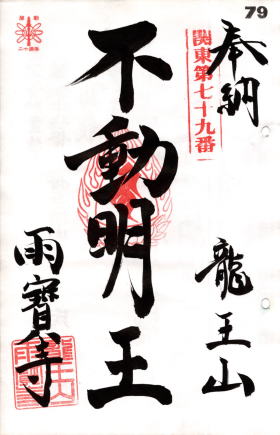 79
奉納
龍王山
関東第七十九番
不動明王
雨寶寺